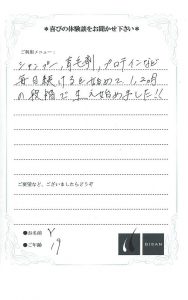 *喜びの体験談をお聞かせ下さい*
ご利用メニュー：
シャンプー，育毛剤，プロテインなど
毎日続けると始めて1,2ヶ月
の段階で生え始めました!!
ご要望など、ございましたらどうぞ
●お名前 Y
●ご年齢 19
BIDAN